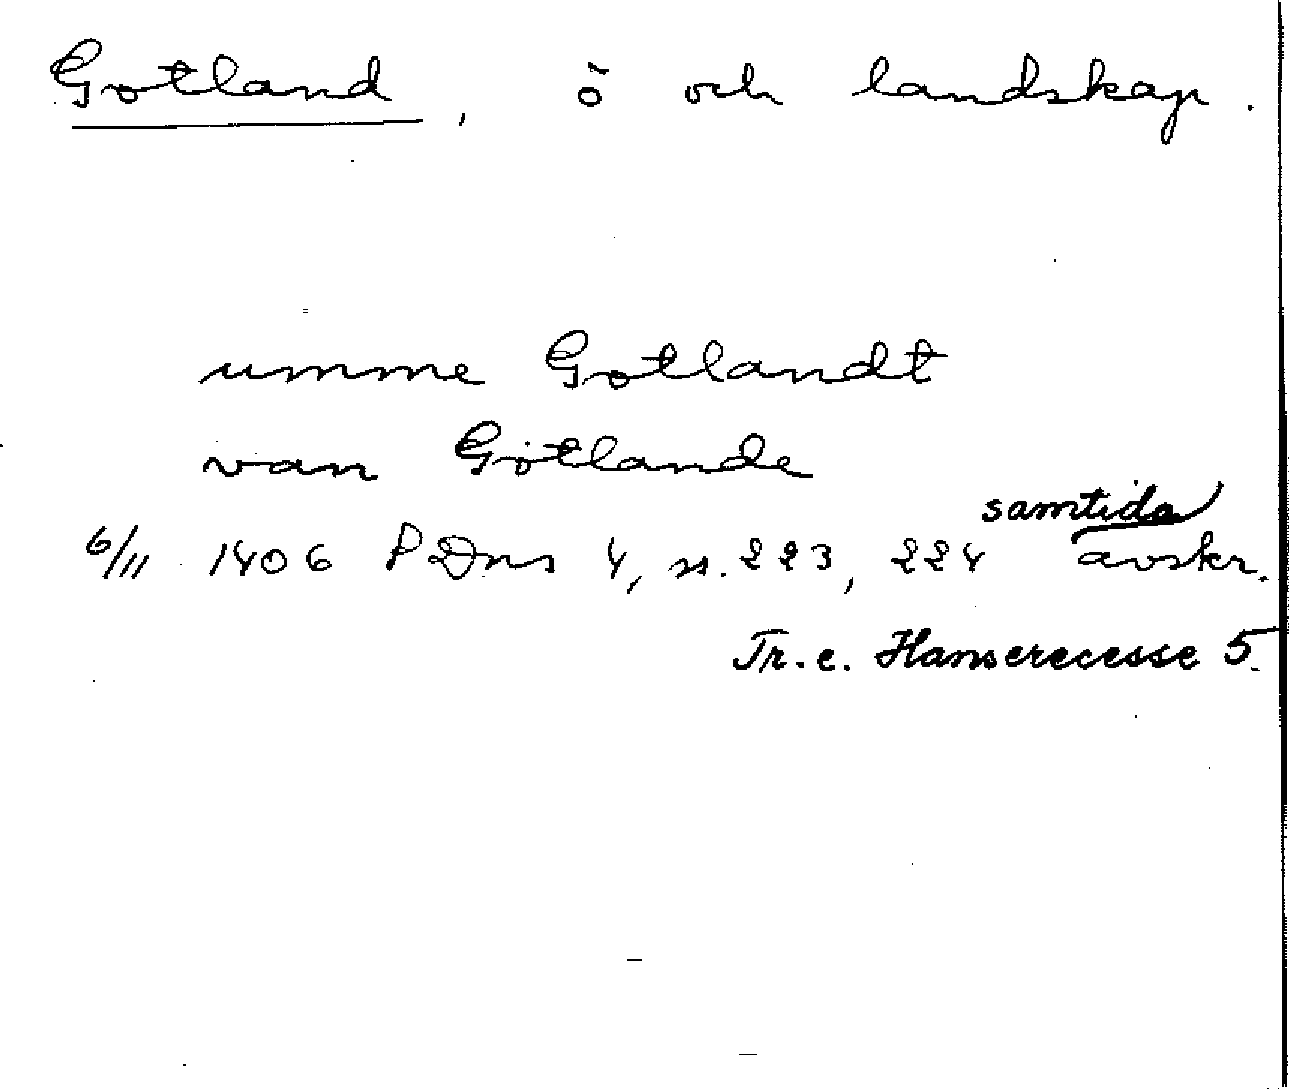 Gotland, ö och landskap.
umme Gotlandt
van Gotlande
samtida
6/11 1406 PDns 4, n. 223, 224 avskr.
Tr. e. Hanserecesse 5.